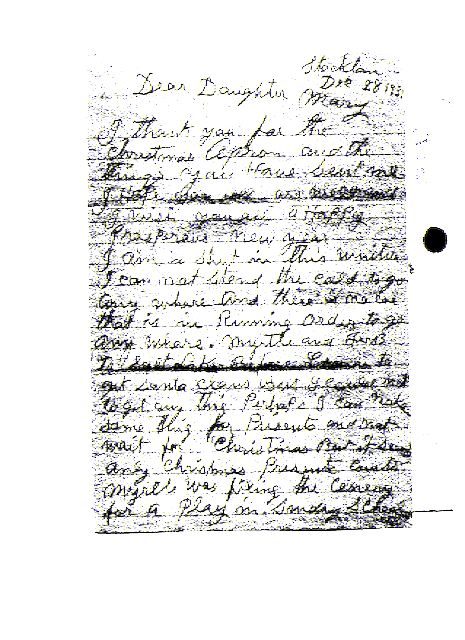 Stockton
Dec 28 193
Dear Daughter Mary
I thank you for the
Christmas Apron and the
things you have sent me
I hope you are
I wish you all a Happy
Prosperous New year
I am a shut in this winter
I can not stend the cold to go
any where and there is no car
that is in Running order to go
any where. Myrtle and
to Salt Lake to
get Santa Claus but I could not
to get any thing Perhaps I can make
some thing for Presents and not
wait for Christmas But I
any Chrismas Presents
Myrtle was fixing the
for a Play in Sunday School